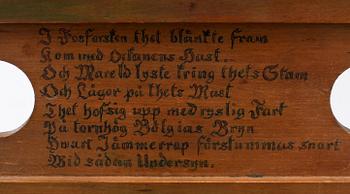 I Fosforsken thet blänkte fram
Kom vnd Oceanens Hast.
Och Mareld lyste kring thets Stam
Och Lågor på thets Mast
Thet hofsig upp med ryslig Fart
På tornhög Bölgias Bryn
Hwart Jämmerrop förstummas snart
Wid sådan Undersyn.